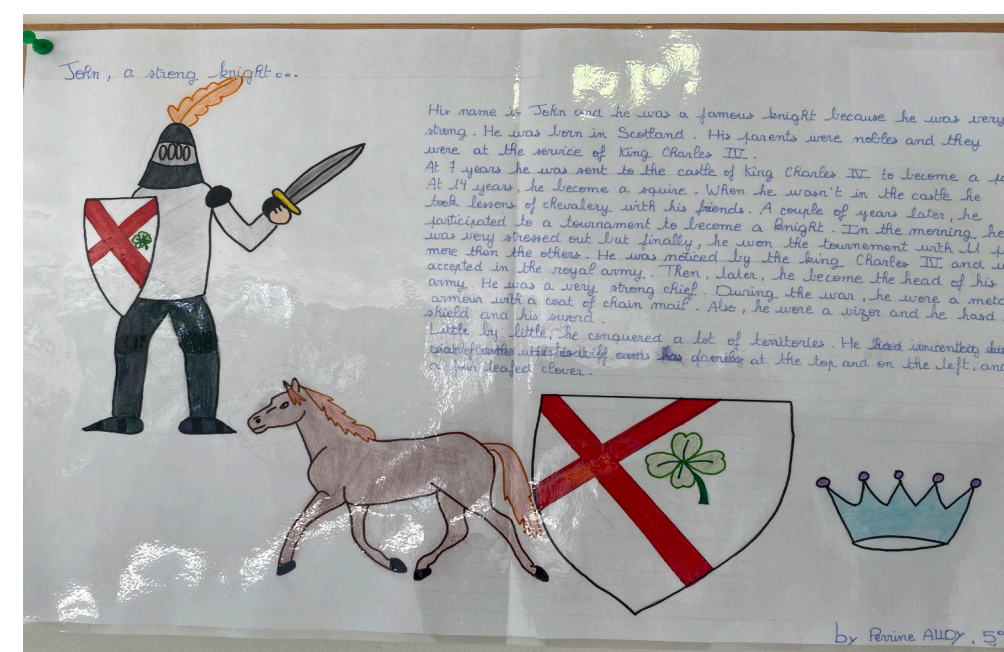 John, a strong knight...
His name is John and he was a famous knight because he was very
strong. He was born in Scotland. His parents were nobles and they
were at the service of King Charles IV.
At 7 years he was sent to the castle of King Charles IV to become a
At 14 years, he become a squire. When he wasn't in the castle he
took lessons of chevalery with his friends. A couple of years later, he
participated to a tournament to become a knight. In the morning he
was very stressed out but finally, he won the tournement with 11
more then the others. He was noticed by the king Charles IV and
accepted in the royal army. Then, later, he become the head of his
army. He was a very strong chief. During the war, he wore a
armour with a coat of chain mail. Also, he wore a vizor and he hasd
shield and his sword.
Little by little, he conquered a lot of territories. He
at the top and on the left, and
a leafed clover.
by Perrine ALLOY, 5°